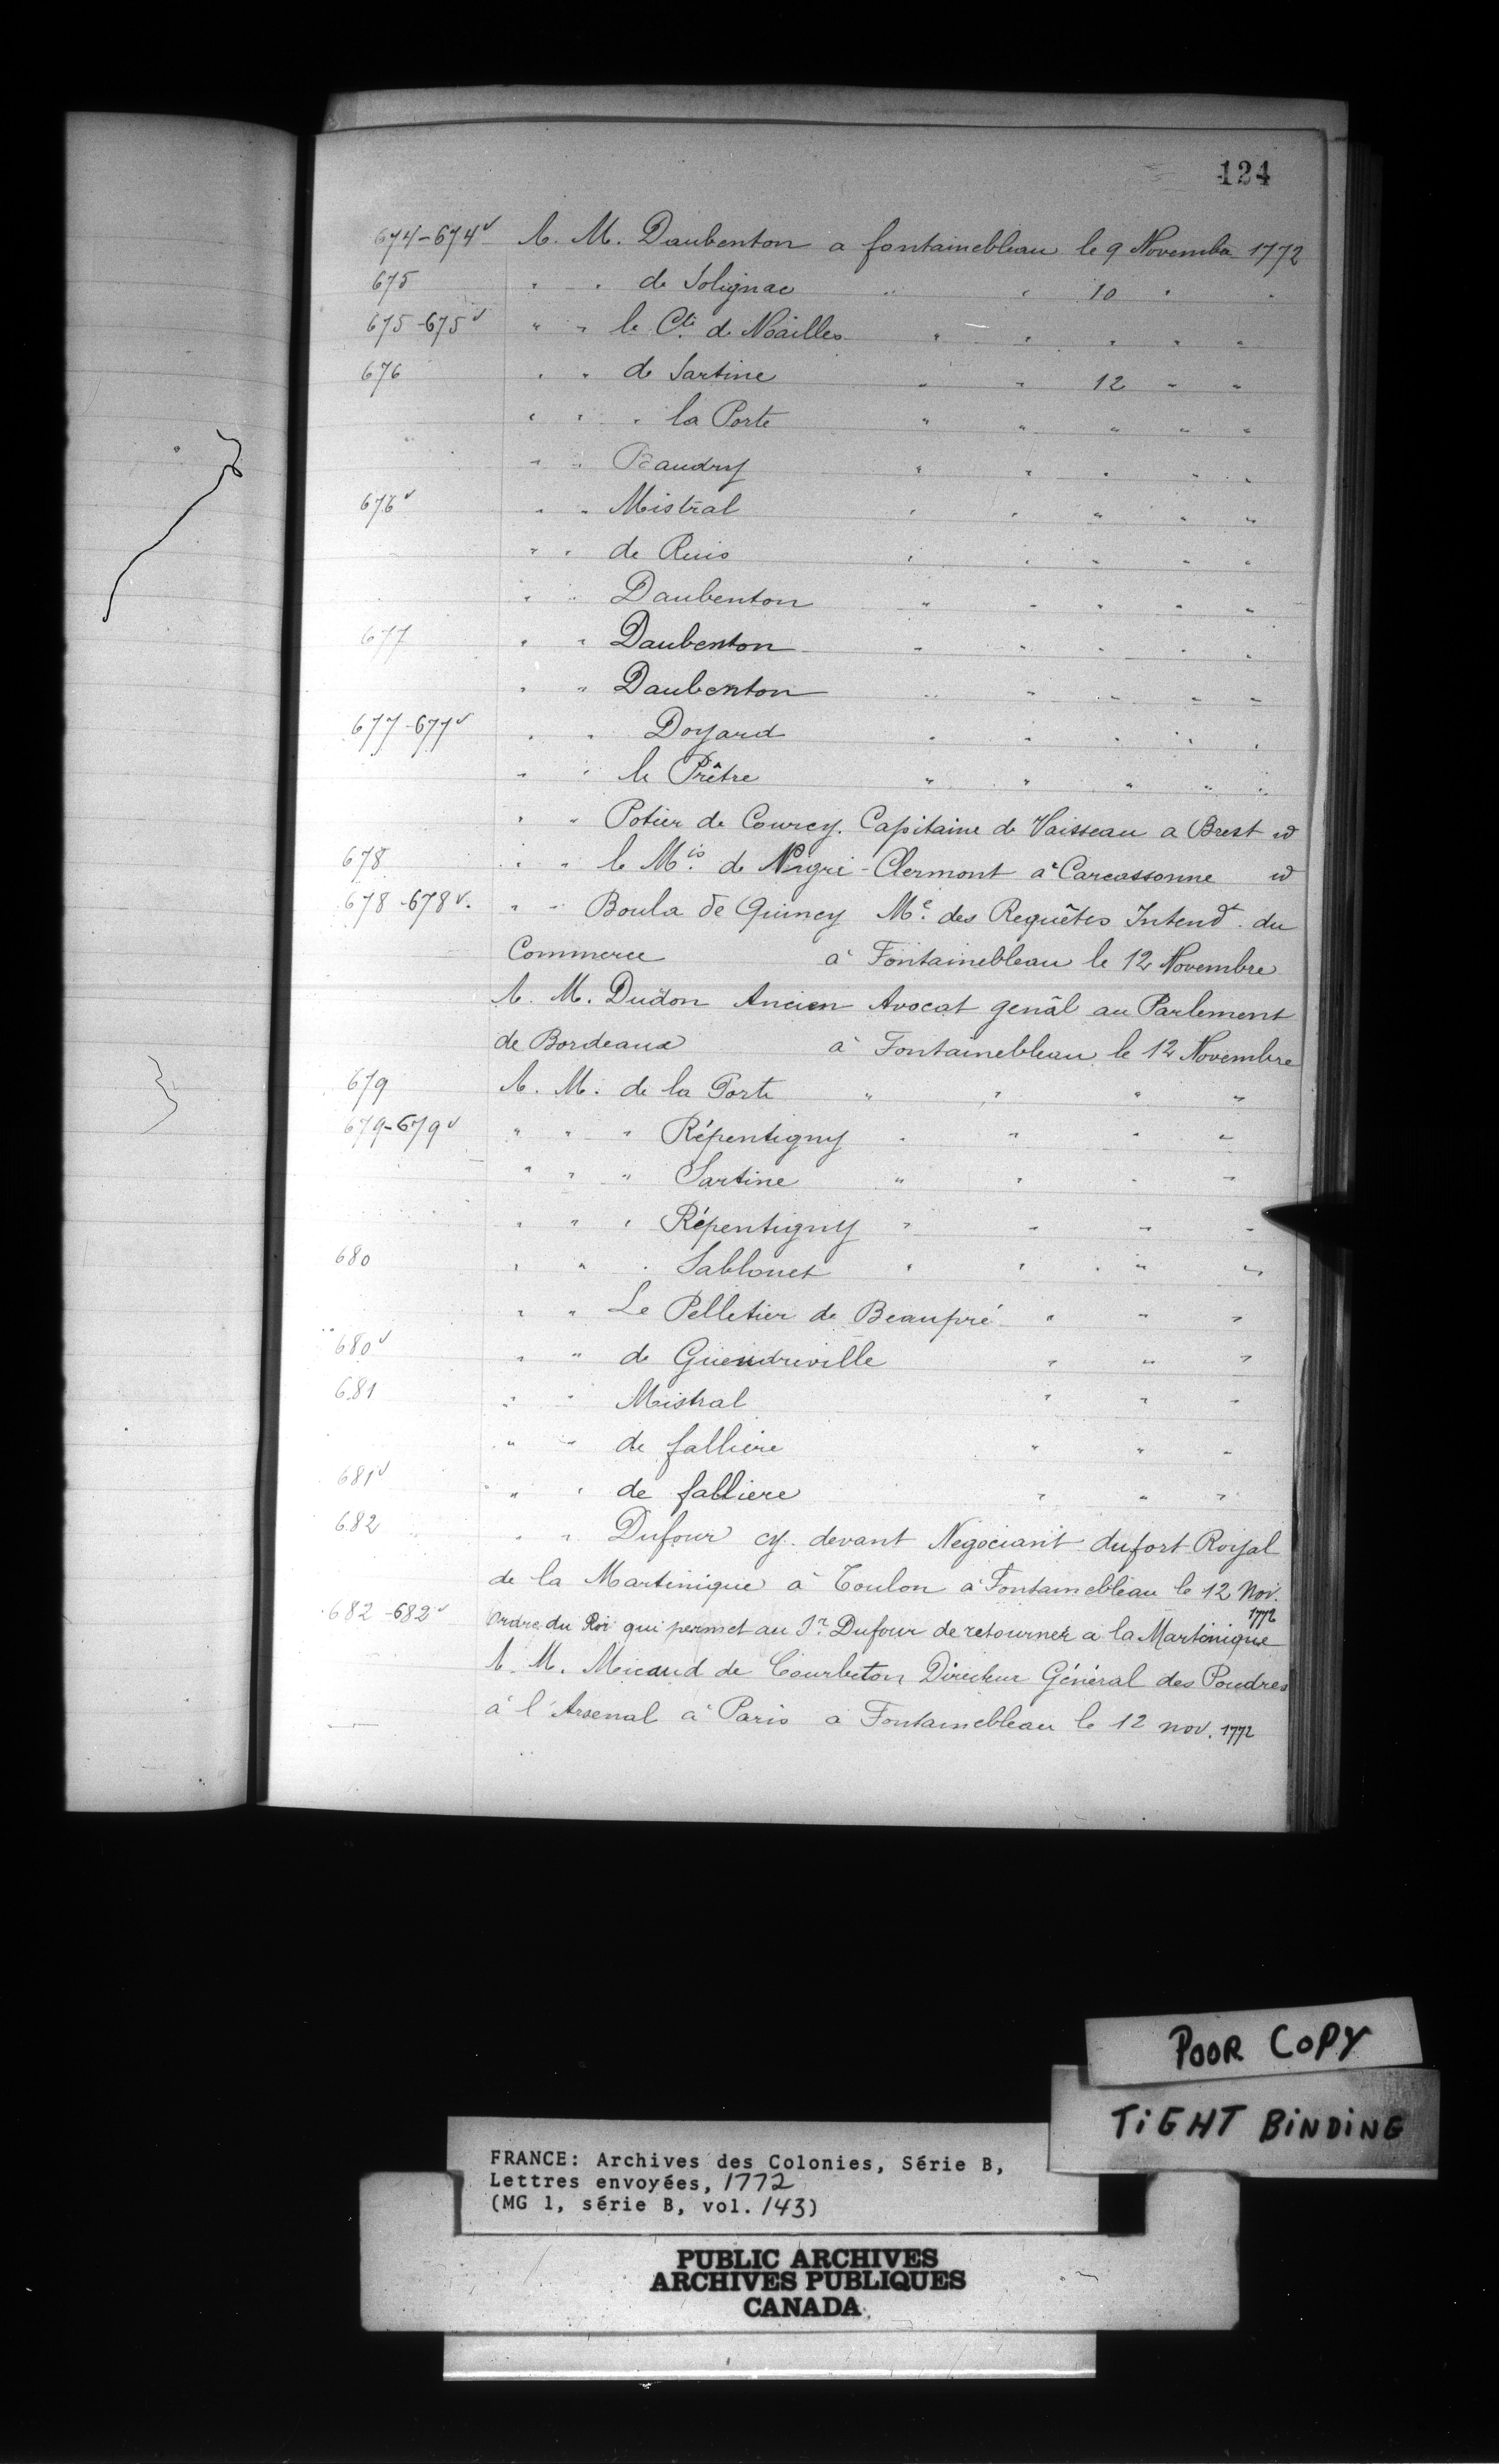 124
674-674v A. M. Daubenton a fontainebleau le 9 Novembre 1772
675 " " de Solignac " " 10 " "
675-675v " " le Cte. de Noailles " " " " "
676 " " de Sartine " " 12 " "
" " " la Porte " " " " "
" " Beaudry " " " " "
676v " " Mistral " " " " "
" " de Ruis " " " " "
" " Daubenton " " " " "
677 " " Daubenton " " " " "
" " Daubenton " " " " "
677-677v " " Doyard " " " " "
" " le Prêtre " " " " "
" " Potier de Courcy. Capitaine de Vaisseau a Brest id
678 " " le Mis. de Nigri-Clermont à Carcassonne id
678-678v. " " Boula de Quincy Me. des Requêtes Intendt. du
Commerce à Fontainebleau le 12 Novembre
A. M. Dudon Ancien Avocat genâl au Parlement
de Bordeaux à Fontainebleau le 12 Novembre
679 A. M. de la Porte " " " "
679-679v " " " Répentigny " " " "
" " " Sartine " " " "
" " " Répentigny " " " "
680 " " " Sablouet " " " "
" " Le Pelletier de Beaupré " " "
680v " " de Guendreville " " "
681 " " Mistral " " "
" " de falliere " " "
681v " " de falliere " " "
682 " " Dufour cy devant Negociant du fort Royal
de la Martinique à Toulon à Fontainebleau le 12 Nov.
1772
682-682v Ordre du Roi qui permet au Sr. Dufour de retourner a la Martinique
A. M. Micaud de Courbeton Directeur Général des Poudres
à l'Arsenal à Paris a Fontainebleau le 12 nov. 1772
POOR COPY
TiGHT BiNDiNG
FRANCE: Archives des Colonies, Série B,
Lettres envoyées, 1772
(MG 1, série B, vol. 143)
PUBLIC ARCHIVES
ARCHIVES PUBLIQUES
CANADA